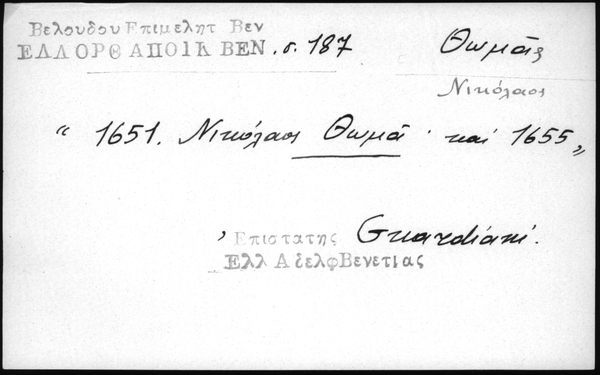 Βελουδου Επιμελητ Βεν
ΕΛΛ ΟΡΘ ΑΠΟΙΚ ΒΕΝ. σ. 187 Θωμᾶς
Νικόλαος
“ 1651. Νικόλαος Θωμᾶ · καί 1655 „
, Επιστατης Guardiani.
Ελλ Αδελφ Βενετιας